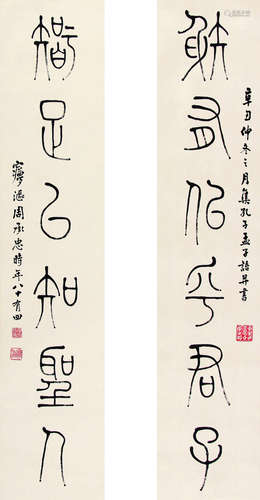 射有似乎君子
辛丑仲冬之月集孔子孟子語并書
智足以知聖人
周承忠時年八十有四